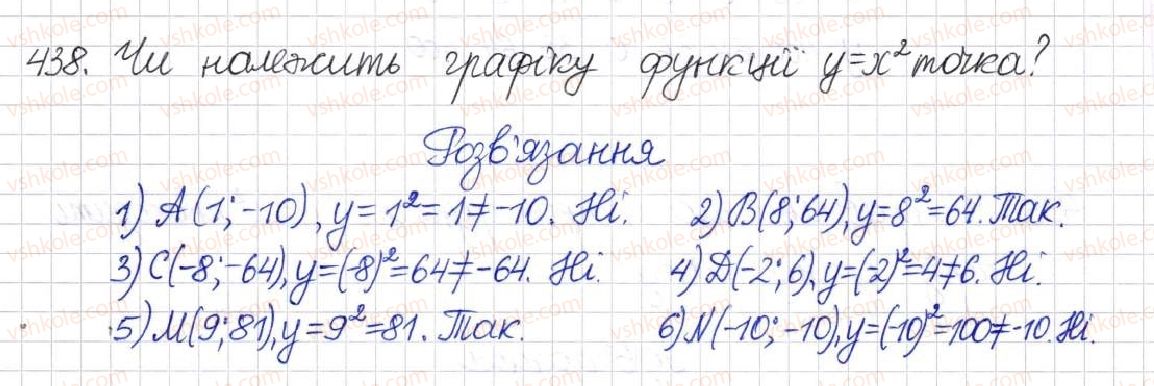 438. Чи належить графіку функції y=x² точка?
Розв'язання
1) A(1; -10), y = 1² = 1 ≠ -10. Ні. 2) B(8; 64), y = 8² = 64. Так.
3) C(-8; -64), y = (-8)² = 64 ≠ -64. Ні. 4) D(-2; 6), y = (-2)² = 4 ≠ 6. Ні.
5) M(9; 81), y = 9² = 81. Так. 6) N(-10; -10), y = (-10)² = 100 ≠ -10. Ні.